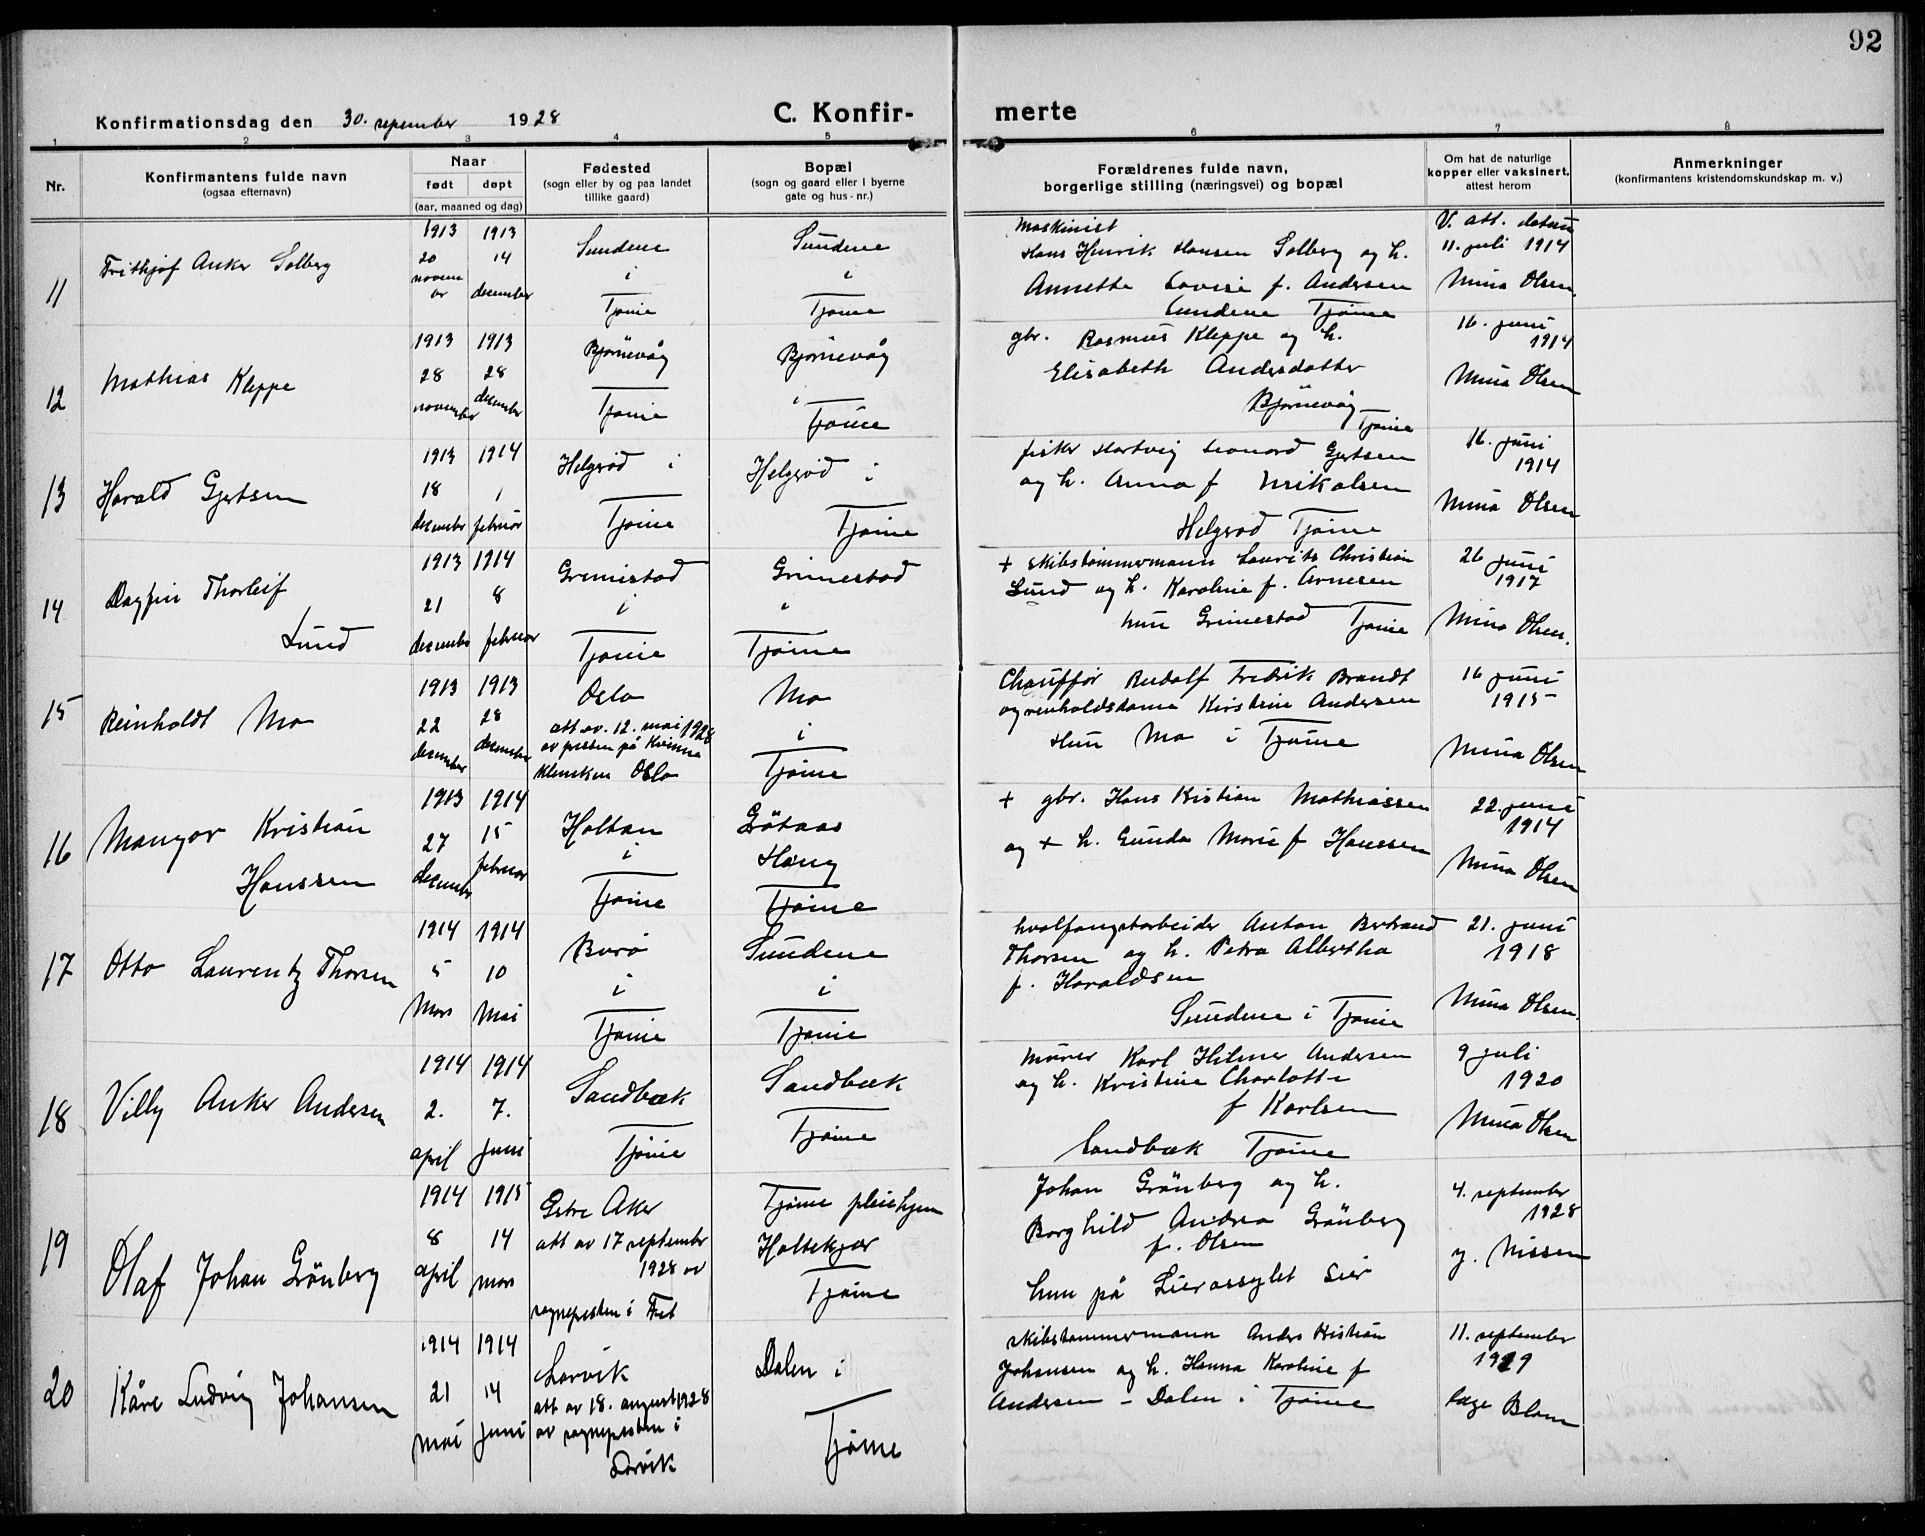 92
Konfirmationsdag den 30. sepember 1928
C. Konfir-
merte
1 2 3 4 5 6 7 8
Nr.
Konfirmantens fulde navn
(ogsaa efternavn)
Naar
født døpt
(aar, maaned og dag)
Fødested
(sogn eller by og paa landet
tillike gaard)
Bopæl
(sogn og gaard eller i byerne
gate og hus-nr.)
Forældrenes fulde navn,
borgerlige stilling (næringsvei) og bopæl
Om hat de naturlige
kopper eller vaksinert,
attest herom
Anmerkninger
(konfirmantens kristendomskundskap m. v.)
11
Frithjof Anker Solberg
1913
20
novem
1913
14
december
Sundene
i
Tjøme
Sundene
i
Tjøme
Maskinist
Hans Henrik Hansen Solberg og h.
Annette Lovise f. Andersen
Sundene Tjøme
V. att. datum
11. juli 1914
Mina Olsen.
12
Mathias Kleppe
1913
28
november
1913
28
desember
Bjørnevåg
Tjøme
Bjørnevåg
i
Tjøme
gbr. Rasmus Kleppe og h.
Elisabeth Andersdatter
Bjørnevåg
Tjøme
16. juni
1914
Mina Olsen
13
Harald Gjertsen
1913
18
desember
1914
1
februar
Helgerød i
Tjøme
Helgerød i
Tjøme
fisker Hartvig Leonard Gjertsen
og h. Anna f Nrikolsen
Helgerød Tjøme
16. juni
1914
Mina Olsen
14
Dagfin Thorleif
Lund
1913
21
desember
1914
8
februar
Grimestad
i
Tjøme
Grimestad
i
Tjøme
+ skibstømmermann Laurits Christian
Lund og h. Karoline f. Arnesen
hun Grimestad Tjøme
26 juni
1917
Mina Olsen.
15
Reinholdt Mo
1913
22
desember
1913
28
desember
Oslo
att. av. 12. mai 1928
av presten på Kvinne
klinikken Oslo
Mo
i
Tjøme
Chauffør Rudolf Fredrik Brandt
og renholdsdame Kirstine Andersen
Hun Mo i Tjøme
16 juni
1915
Mina Olsen
16
Mangor Kristian
Hanssen
1913
27
desember
1914
15
februar
Holtan
i
Tjøme
Gråtaas
Haug
Tjøme
+ gbr. Hans Kristian Mathiassen
og + h. Gunda Marie f Hanssen
22. juni
1914
Mina Olsen
17
Otto Laurentz Thorsen
1914
5
Mars
1914
10
Mai
Burø
i
Tjøme
Sundene
i
Tjøme
hvalfangstarbeider Anton Bertrand
Thorsen og h. Petra Albertha
f. Haraldsen
Sundene i Tjøme
21. juni
1918
Mina Olsen.
18
Villy Anker Andersen
1914
2.
april
1914
7.
juni
Sandbæk
Tjøme
Sandbæk
Tjøme
Murer Karl Hilmer Andersen
og h. Kristine Charlotte
f Karlsen
Sandbæk Tjøme
9 juli
1920
Mina Olsen
19
Olaf Johan Grönberg
1914
8
april
1915
14
mars
Østre Aker
att av 17 september
1928 av
sognepresten i Tret
Tjøme pleiehjem
Holtekjær
Tjøme
Johan Grönberg og h.
Borghild Andrea Grönberg
f. Olsen
hun på Lierassylet Lier
4. september
1928
y. Nissen
20
Kåre Ludvig Johansen
1914
21
mai
1914
14
juni
Larvik
att av 18. august 1928
av sognepresten i
Larvik
Dalen i
Tjøme
skibstømmermann Anders Kristian
Johansen og h. Hanna Karoline f
Andersen - Dalen i Tjøme
11. september
1919
Aage Blom